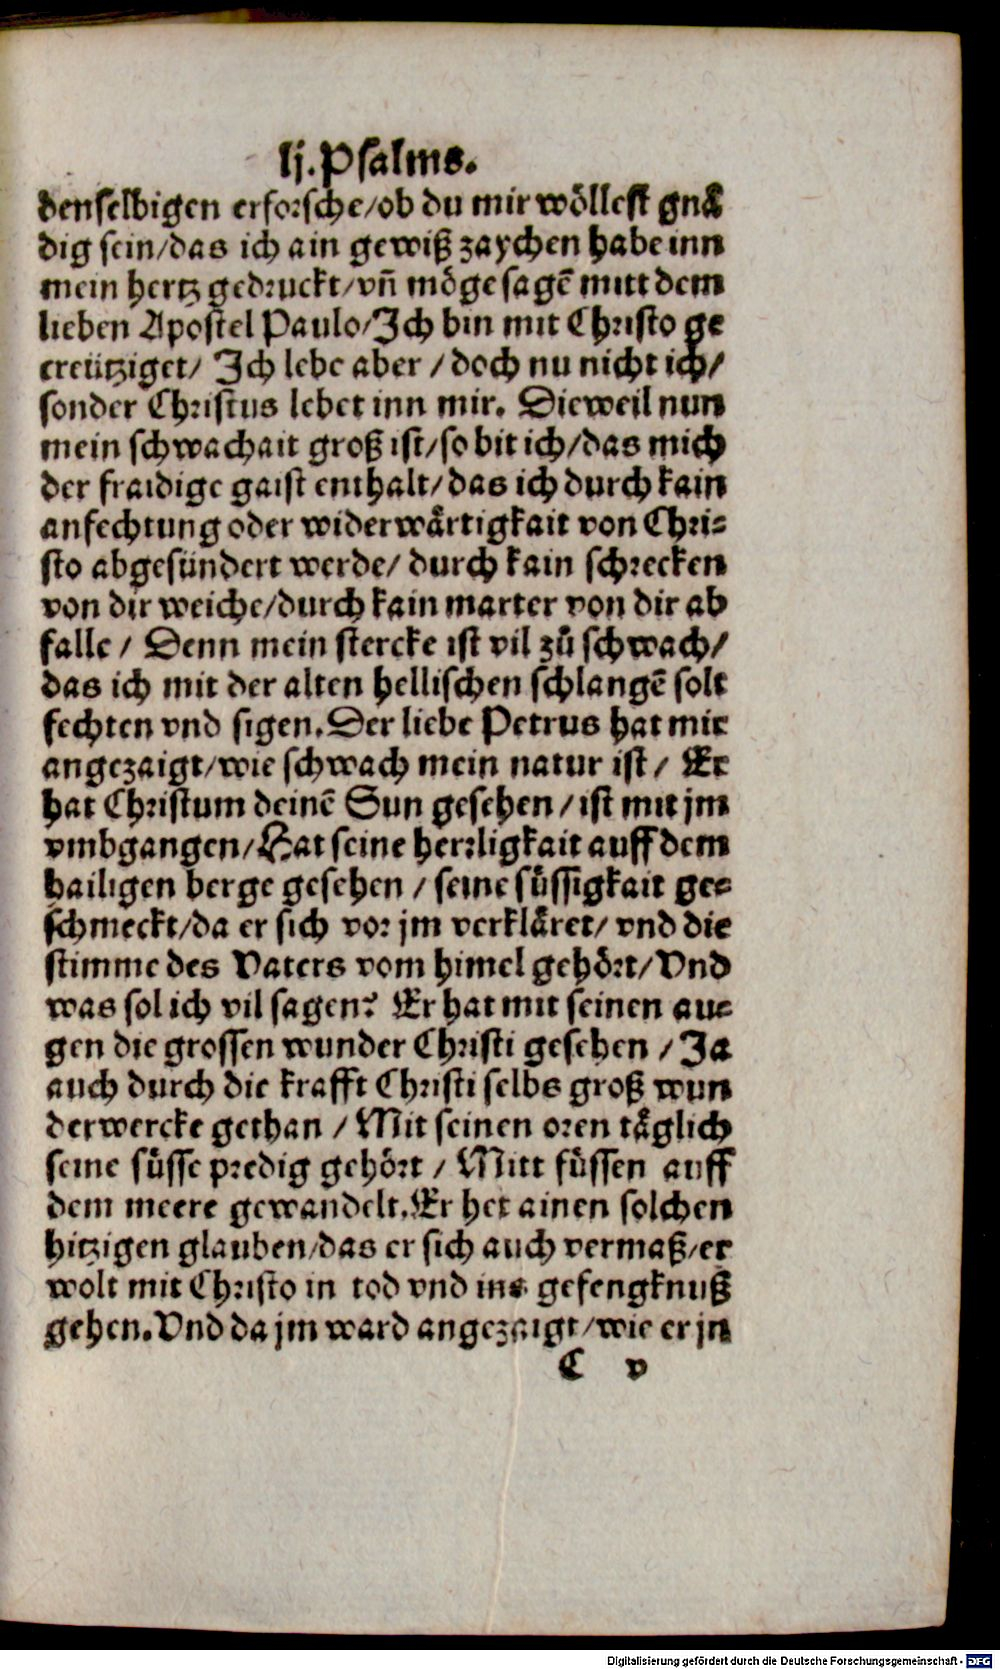 lj. Psalms.
denselbigen erforsche/ob du mir wöllest gnaͤ
dig sein/das ich ain gewiß zaychen habe inn
mein hertz gedruckt/vñ möge sagẽ mitt dem
lieben Apostel Paulo/Ich bin mit Christo ge
creütziget/ Ich lebe aber / doch nu nicht ich/
sonder Christus lebet inn mir. Dieweil nun
mein schwachait groß ist/so bit ich/das mich
der fraidige gaist enthalt/das ich durch kain
anfechtung oder widerwaͤrtigkait von Chri-
sto abgesündert werde/ durch kain schrecken
von dir weiche/durch kain marter von dir ab
falle / Denn mein stercke ist vil zuͦ schwach/
das ich mit der alten hellischen schlangẽ solt
fechten vnd sigen. Der liebe Petrus hat mir
angezaigt/wie schwach mein natur ist/ Er
hat Christum deinẽ Sun gesehen / ist mit jm
vmbgangen/Hat seine herrligkait auff dem
hailigen berge gesehen / seine süssigkait ge-
schmeckt/da er sich vor jm verklaͤret/ vnd die
stimme des Vaters vom himel gehört/Vnd
was sol ich vil sagen? Er hat mit seinen au-
gen die grossen wunder Christi gesehen / Ja
auch durch die krafft Christi selbs groß wun
derwercke gethan / Mit seinen oren taͤglich
seine süsse predig gehört / Mitt füssen auff
dem meere gewandelt. Er het ainen solchen
hitzigen glauben/das er sich auch vermaß/er
wolt mit Christo in tod vnd ins gefengknuß
gehen. Vnd da jm ward angezaigt/wie er jn
C v
Digitalisierung gefördert durch die Deutsche Forschungsgemeinschaft - DFG